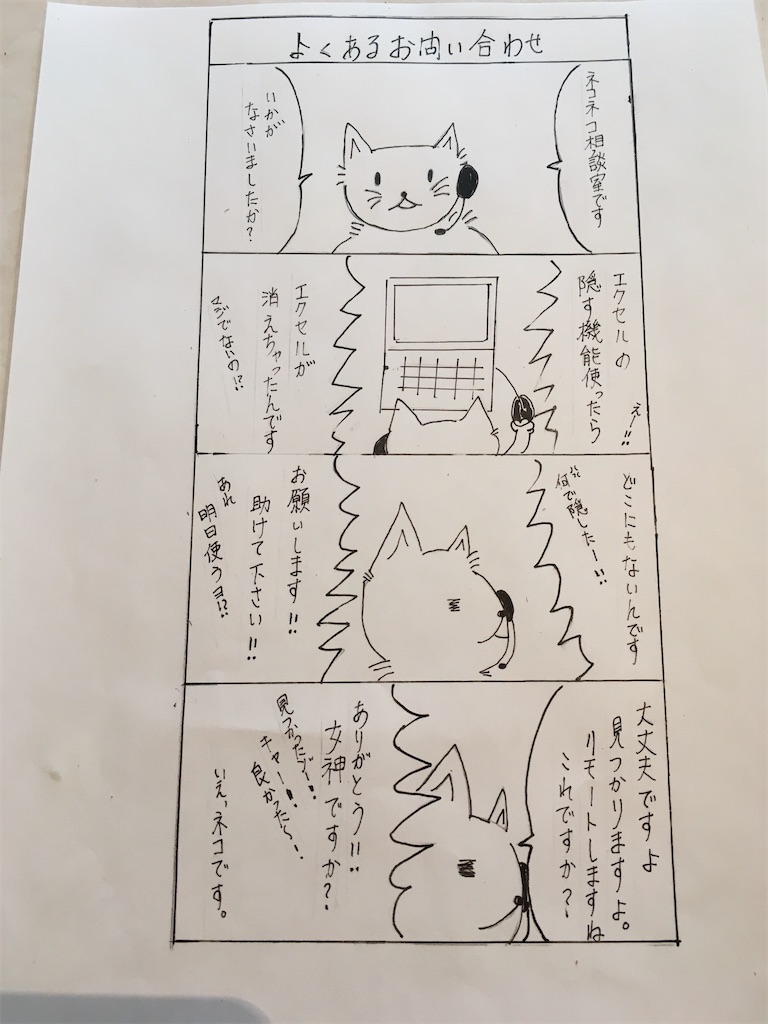 よくあるお問い合わせ
ネコネコ相談室です
いかが
なさいましたか?
エクセルの
隠す機能使ったら
えー!!
エクセルが
消えちゃったんです
マジでないの!?
どこにもないんです
何で隠したー!!
お願いします!!
助けて下さい!!
あれ
明日使うヨ!?
大丈夫ですよ
見つかりますよ。
リモートしますね
これですか?
ありがとう!!
女神ですか?
見つかったゾー!!
キャー!!
良かったら!
いえ、ネコです。